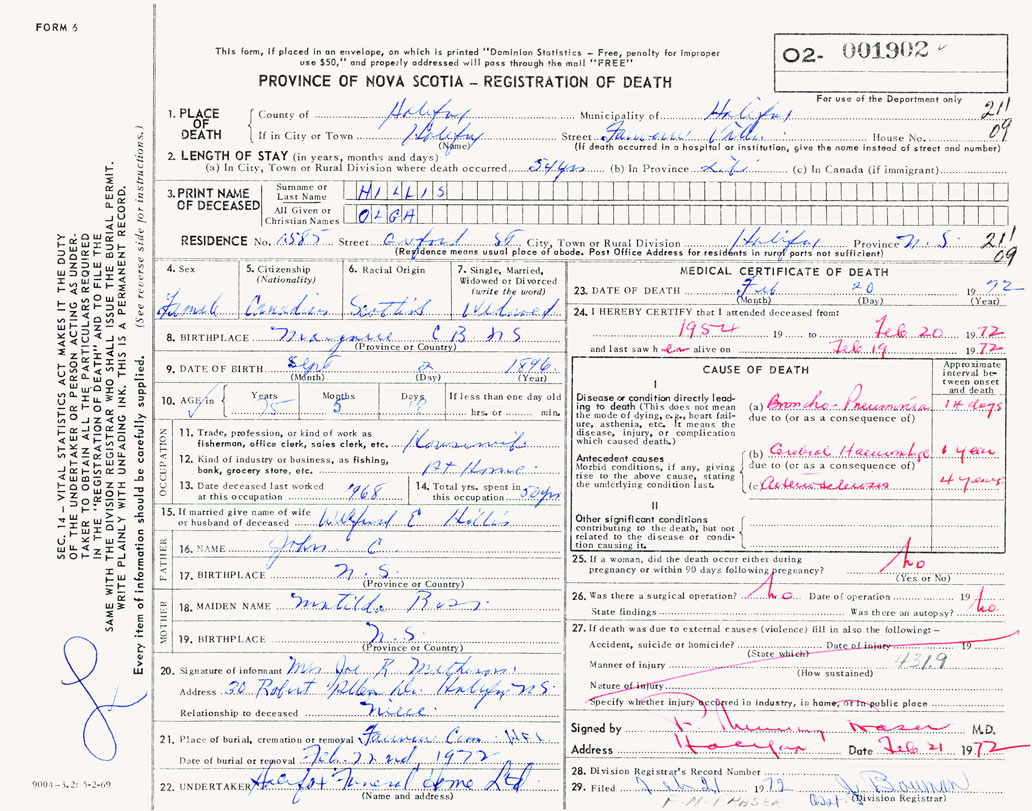 FORM 6
This form, if placed in an envelope, on which is printed "Dominion Statistics – Free, penalty for improper
use $50," and properly addressed will pass through the mail "FREE"
O2- 001902
PROVINCE OF NOVA SCOTIA – REGISTRATION OF DEATH
For use of the Department only
1. PLACE OF DEATH
County of Halifax Municipality of Halifax 211
If in City or Town Halifax Street House No. 09
(Name) (If death occurred in a hospital or institution, give the name instead of street and number)
2. LENGTH OF STAY (in years, months and days)
(a) In City, Town or Rural Division where death occurred 54 yrs (b) In Province Life (c) In Canada (if immigrant)
3. PRINT NAME OF DECEASED
Surname or Last Name HILLIS
All Given or Christian Names OLGA
RESIDENCE No. 1585 Street Oxford St City, Town or Rural Division Halifax Province N.S. 211
(Residence means usual place of abode. Post Office Address for residents in rural parts not sufficient) 09
4. Sex
Female
5. Citizenship (Nationality)
Canadian
6. Racial Origin
Scottish
7. Single, Married, Widowed or Divorced (write the word)
Widowed
8. BIRTHPLACE Margaree C B N S
(Province or Country)
9. DATE OF BIRTH Sept 2 1896
(Month) (Day) (Year)
10. AGE in Years 75 Months 5 Days 18 If less than one day old
hrs. or min.
OCCUPATION
11. Trade, profession, or kind of work as
fishermen, office clerk, sales clerk, etc. Housewife
12. Kind of industry or business, as fishing,
bank, grocery store, etc. At Home
13. Date deceased last worked
at this occupation 1968
14. Total yrs. spent in
this occupation 50 yrs
15. If married give name of wife
or husband of deceased Wilfred E Hillis
FATHER
16. NAME John C.
17. BIRTHPLACE N.S.
(Province or Country)
MOTHER
18. MAIDEN NAME Matilda Ross
19. BIRTHPLACE N.S.
(Province or Country)
20. Signature of informant Mrs Joe R.
Address 30 Robert Allen Dr. Halifax N.S.
Relationship to deceased Niece
21. Place of burial, cremation or removal
Date of burial or removal Feb. 22nd 1972
22. UNDERTAKER Halifax Funeral Home Ltd
(Name and address)
MEDICAL CERTIFICATE OF DEATH
23. DATE OF DEATH Feb 20 1972
(Month) (Day) (Year)
24. I HEREBY CERTIFY that I attended deceased from:
1954 19 to Feb 20 1972
and last saw her alive on Feb 19 1972
CAUSE OF DEATH
Approximate interval between onset and death
I
Disease or condition directly leading
to death (This does not mean
the mode of dying, e.g., heart failure,
asthenia, etc. It means the
disease, injury, or complication
which caused death.)
(a) Broncho-Pneumonia 14 days
due to (or as a consequence of)
Antecedent causes
Morbid conditions, if any, giving
rise to the above cause, stating
the underlying condition last.
(b) Cerebral Haemorrhage 1 year
due to (or as a consequence of)
(c) Arteriosclerosis 4 years
II
Other significant conditions
contributing to the death, but not
related to the disease or condition
causing it.
25. If a woman, did the death occur either during
pregnancy or within 90 days following pregnancy? No
(Yes or No)
26. Was there a surgical operation? No Date of operation 19
State findings Was there an autopsy? No
27. If death was due to external causes (violence) fill in also the following: –
Accident, suicide or homicide? Date of injury 19
(State which)
Manner of injury 4319
(How sustained)
Nature of injury
Specify whether injury occurred in industry, in home, or in public place
Signed by Fraser M.D.
Address Halifax Date Feb 21 1972
28. Division Registrar's Record Number
29. Filed Feb 21 1972 J. Bowman
F.M. FRASER (Division Registrar)
SEC. 14 – VITAL STATISTICS ACT MAKES IT THE DUTY
OF THE UNDERTAKER OR PERSON ACTING AS UNDER-
TAKER TO OBTAIN ALL THE PARTICULARS REQUIRED
IN THE "REGISTRATION OF DEATH" AND TO FILE THE
SAME WITH THE DIVISION REGISTRAR WHO SHALL ISSUE THE BURIAL PERMIT.
WRITE PLAINLY WITH UNFADING INK. THIS IS A PERMANENT RECORD.
Every item of information should be carefully supplied. (See reverse side for instructions.)
9004-3.2: 5-2-69